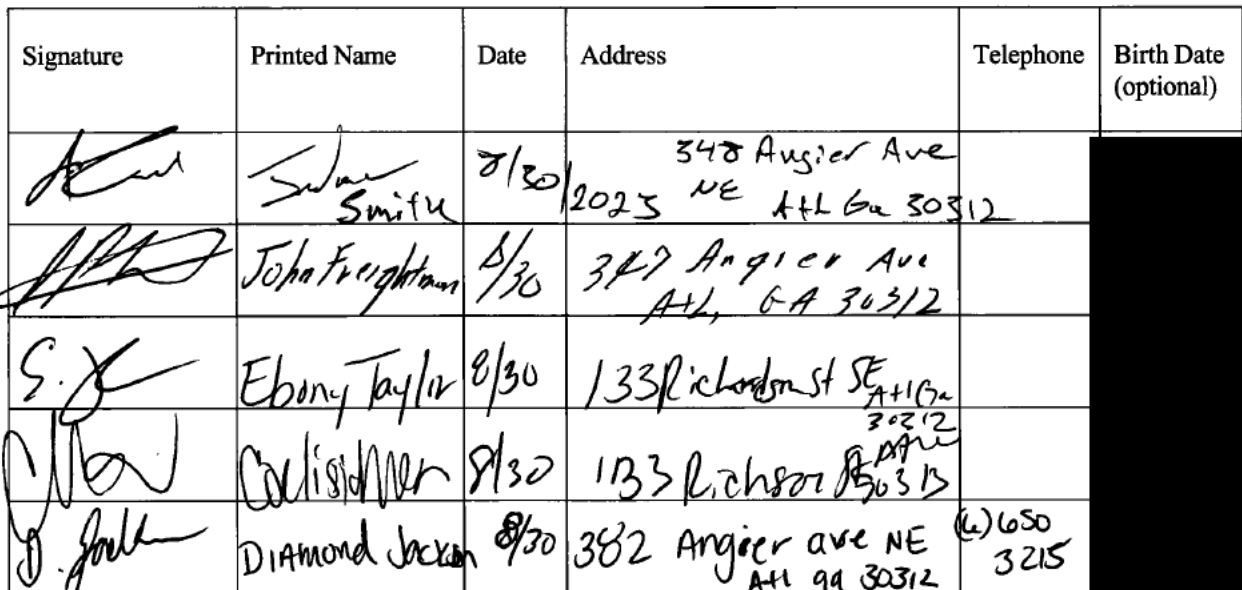 Signature Printed Name Date Address Telephone Birth Date
(optional)
Smith 8/30/2023 348 Angier Ave
NE Atl Ga 30312
John Freightman 8/30 347 Angier Ave
Atl, GA 30312
S. Ebony Taylor 8/30 133 Richardson St SE
Atl Ga
30312
8/30 133
30313
D. Jackson Diamond Jackson 8/30 382 Angier ave NE
Atl ga 30312
650
3215